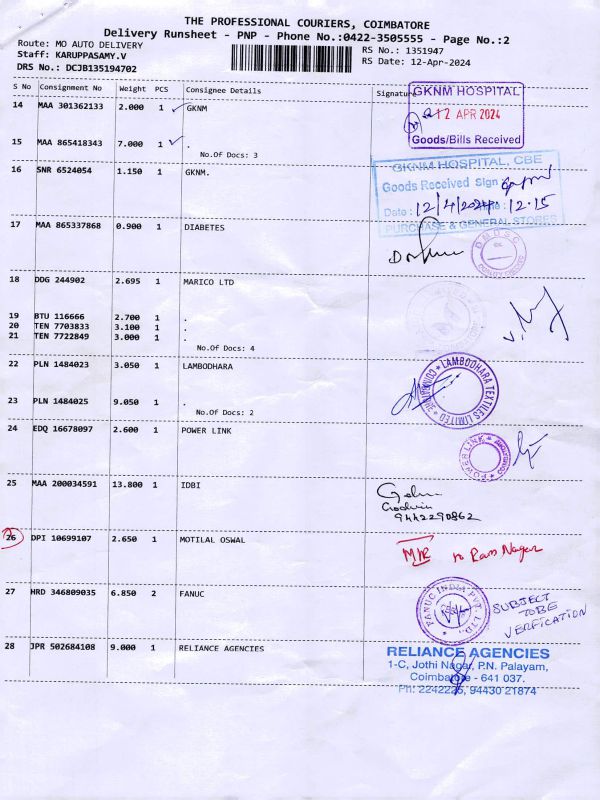 THE PROFESSIONAL COURIERS, COIMBATORE
Delivery Runsheet - PNP - Phone No.:0422-3505555 - Page No.:2
Route: MO AUTO DELIVERY
Staff: KARUPPASAMY.V
DRS No.: DCJB135194702
RS No.: 1351947
RS Date: 12-Apr-2024
S No Consignment No Weight PCS Consignee Details Signature
14 MAA 301362133 2.000 1 GKNM
GKNM HOSPITAL
12 APR 2024
Goods/Bills Received
15 MAA 865418343 7.000 1 .
No.Of Docs: 3
16 SNR 6524054 1.150 1 GKNM.
GKNM HOSPITAL, CBE
Goods Received Sign
Date: 12/4/2024 Time: 12.15
PURCHASE & GENERAL STORES
17 MAA 865337868 0.900 1 DIABETES
18 DDG 244902 2.695 1 MARICO LTD
19 BTU 116666 2.700 1 .
20 TEN 7703833 3.100 1 .
21 TEN 7722849 3.000 1 .
No.Of Docs: 4
22 PLN 1484023 3.050 1 LAMBODHARA
LAMBODHARA TEXTILES LIMITED
23 PLN 1484025 9.050 1 .
No.Of Docs: 2
24 EDQ 16678097 2.600 1 POWER LINK
POWER LINK
25 MAA 200034591 13.800 1 IDBI
9442290862
26 DPI 10699107 2.650 1 MOTILAL OSWAL
Ram Nagar
27 HRD 346809035 6.850 2 FANUC
FANUC INDIA PVT. LTD.
SUBJECT
TO BE
VERFICATION
28 JPR 502684108 9.000 1 RELIANCE AGENCIES
RELIANCE AGENCIES
1-C, Jothi Nagar, P.N. Palayam,
Coimbatore - 641 037.
Ph: 2242225, 94430 21874